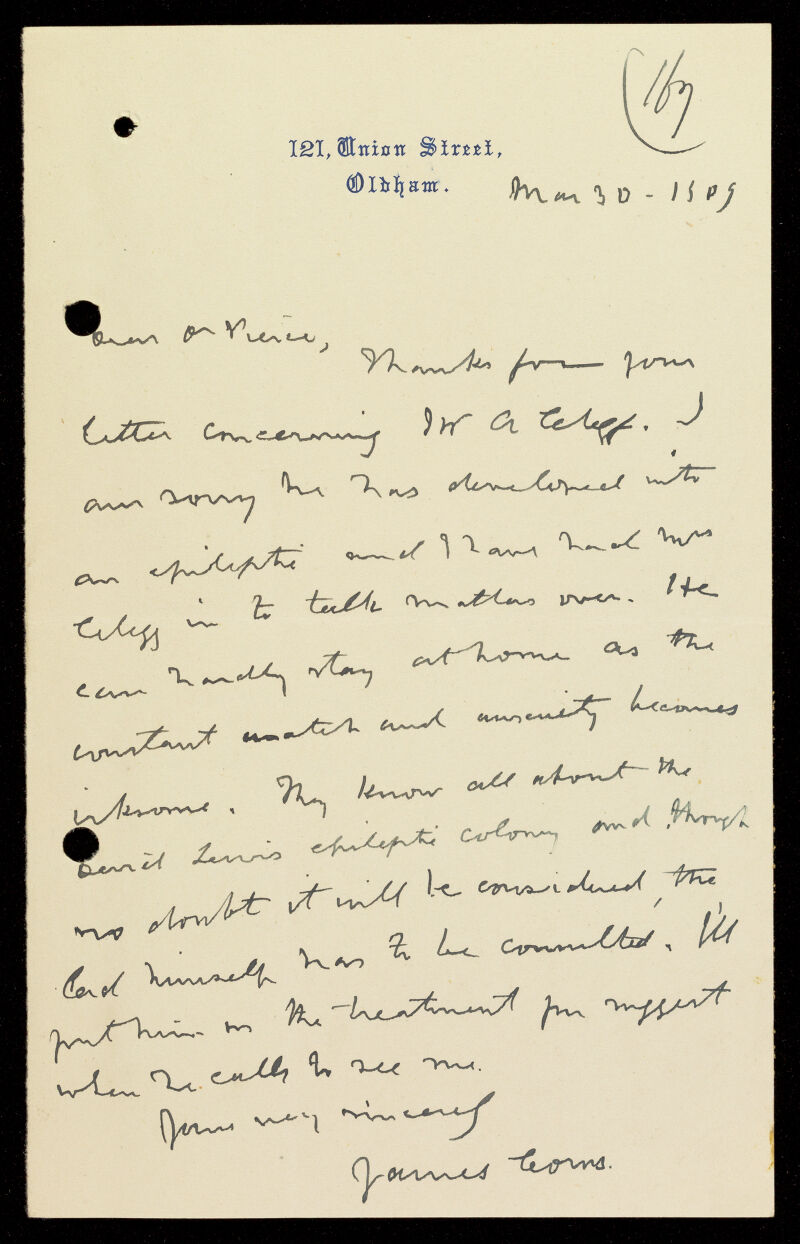 167
121, Union Street,
Oldham.
Mar 30 - 1909
Dear Dr Pierce,
Thanks for your
letter concerning Mr A Clegg. I
am sorry he has developed into
an epileptic and I have had Mrs
Clegg in to talk matters over. He
can hardly stay at home as the
constant watch and anxiety becomes
irksome. They know all about the
David Lewis epileptic colony and though
no doubt it will be considered, the
lad himself has to be consulted. I'll
put him on the treatment you suggest
when he calls to see me.
Yours very sincerely
James Corns.